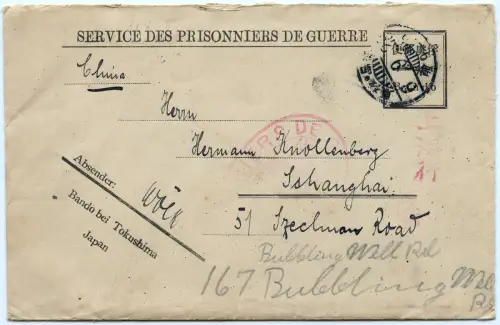 SERVICE DES PRISONNIERS DE GUERRE
China
Herrn
Hermann Knollenberg
Sshanghai.
51 Szechuan Road
Bubbling Well Rd
167 Bubbling Well
Rd
Absender:
Bando bei Tokushima
Japan